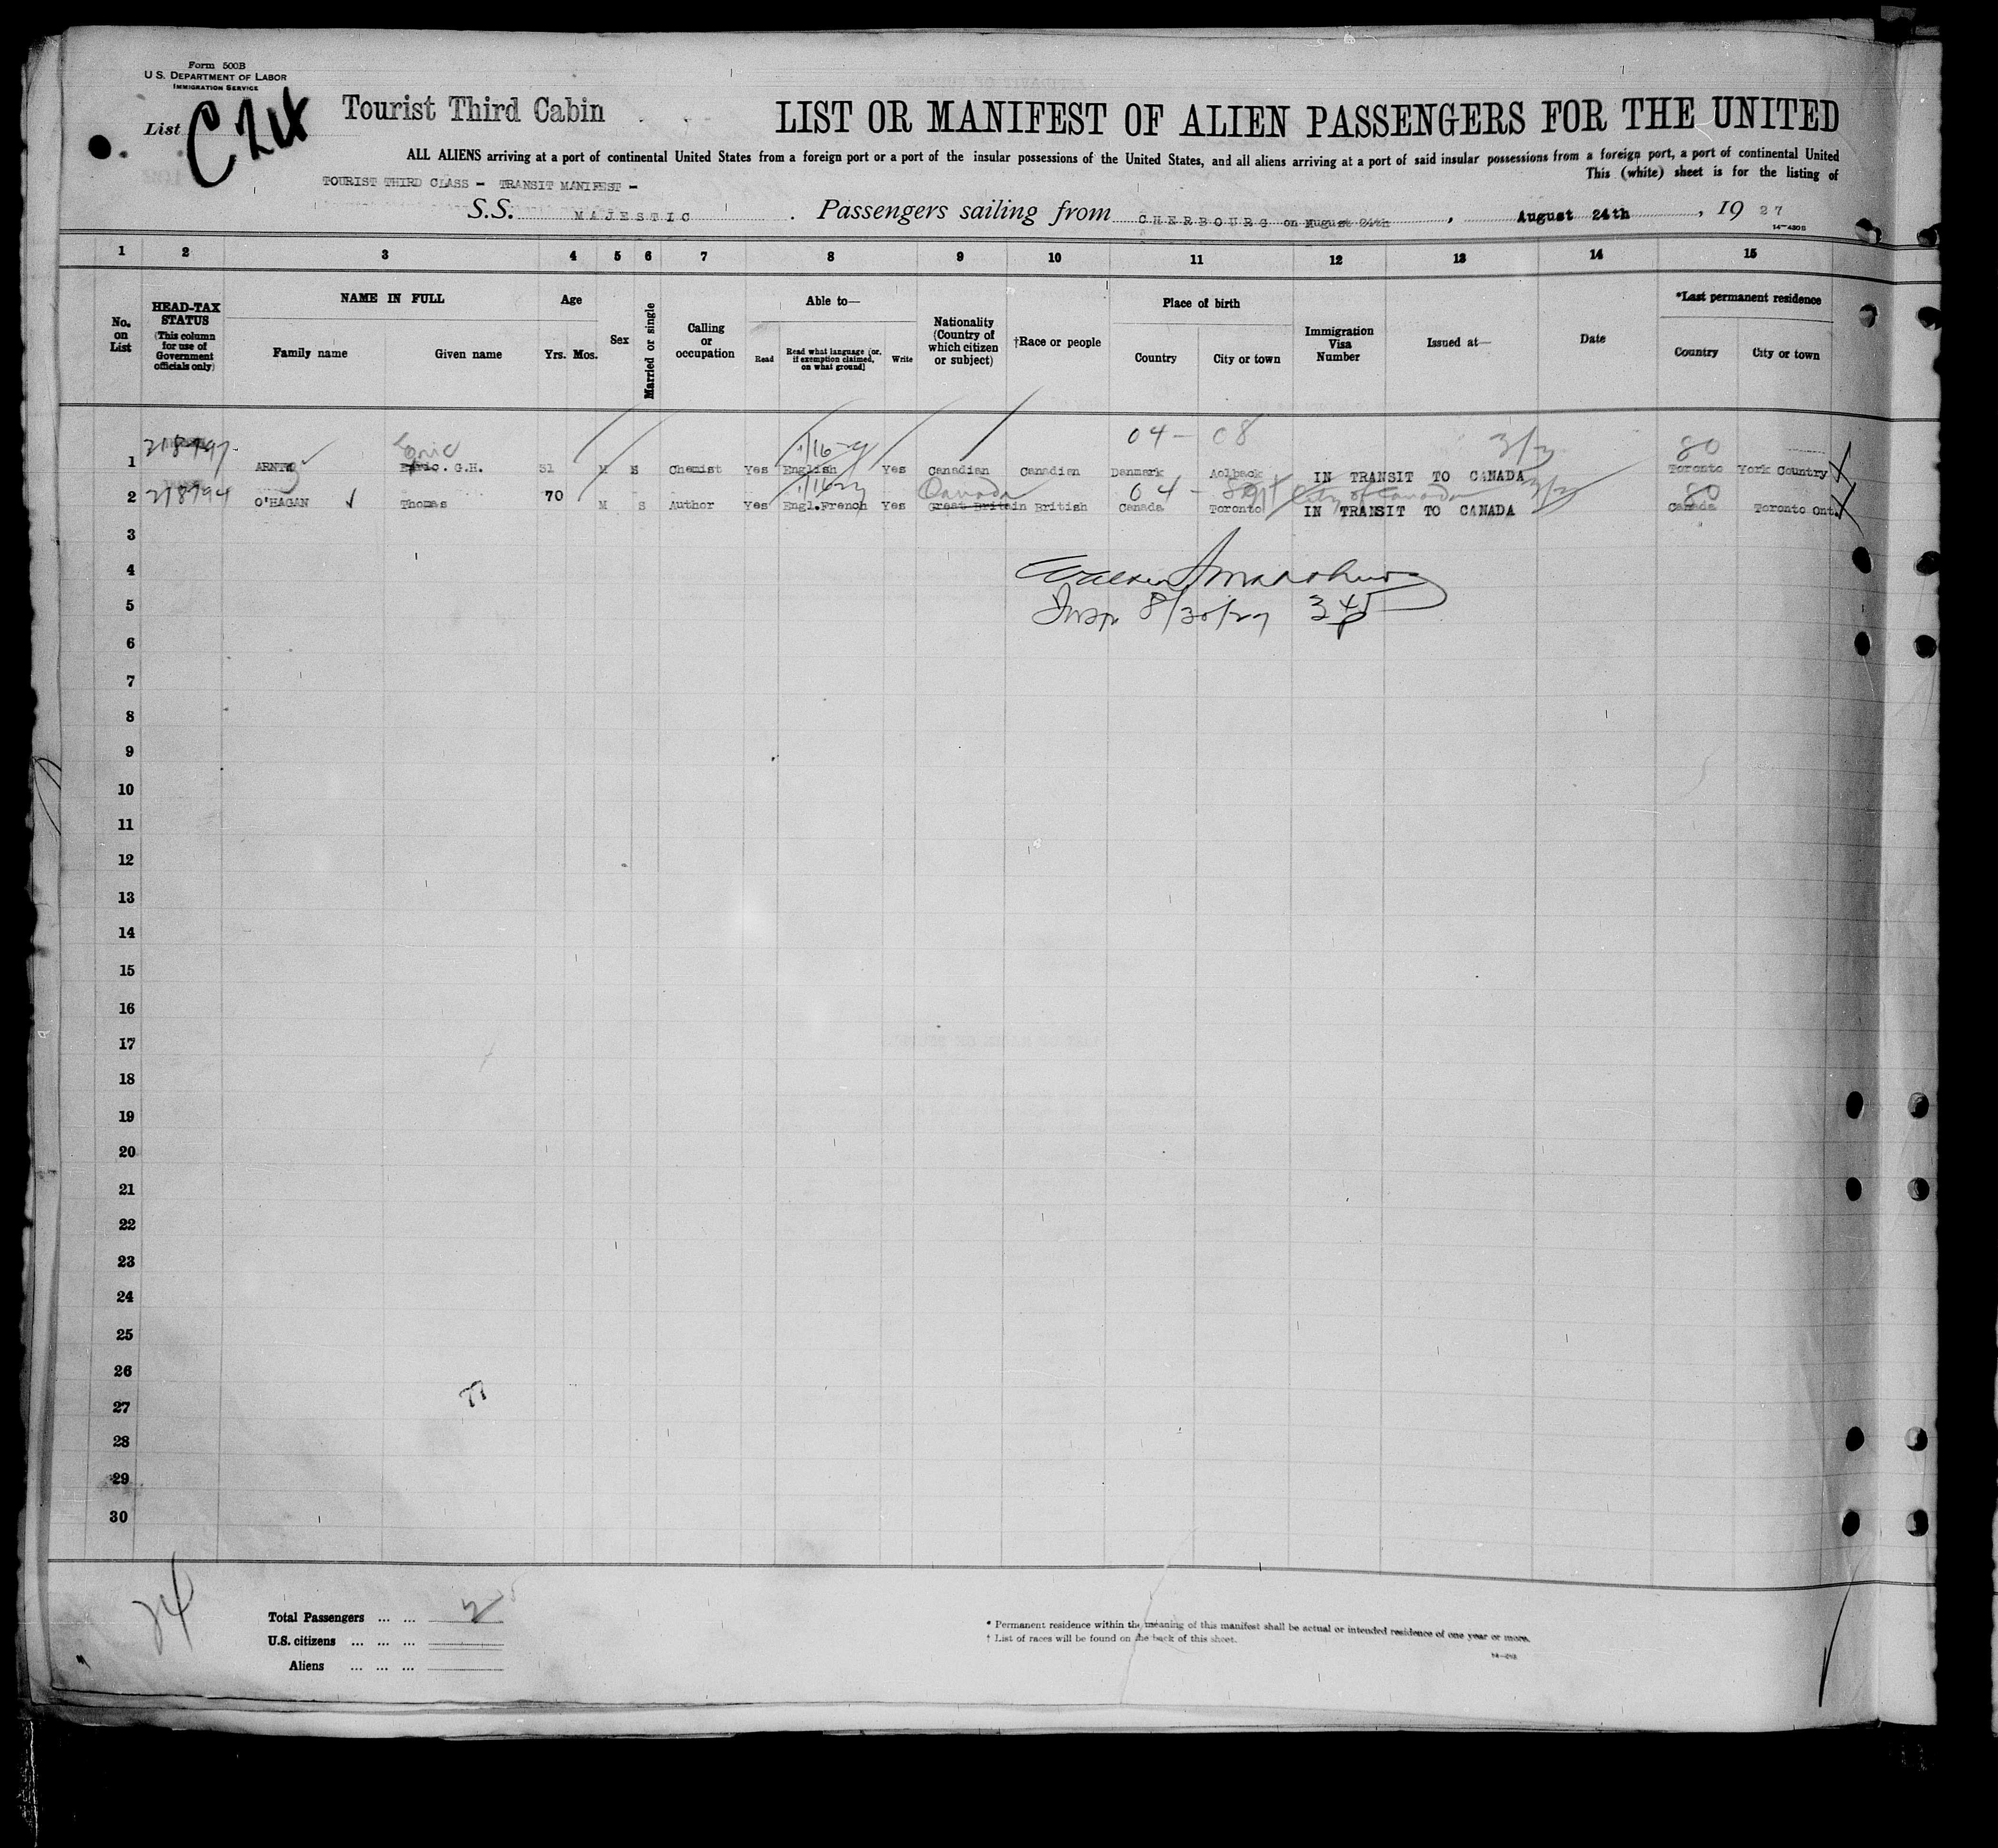 Form 500B
U.S. DEPARTMENT OF LABOR
IMMIGRATION SERVICE
List
Tourist Third Cabin
LIST OR MANIFEST OF ALIEN PASSENGERS FOR THE UNITED
ALL ALIENS arriving at a port of continental United States from a foreign port or a port of the insular possessions of the United States, and all aliens arriving at a port of said insular possessions from a foreign port, a port of continental United
This (white) sheet is for the listing of
TOURIST THIRD CLASS - TRANSIT MANIFEST -
S.S. MAJESTIC . Passengers sailing from CHERBOURG on August 24th , August 24th , 19 27
14-4208
1 2 3 4 5 6 7 8 9 10 11 12 13 14 15
No. on List
HEAD-TAX STATUS
(This column for use of Government officials only)
NAME IN FULL
Family name Given name
Age
Yrs. Mos.
Sex
Married or single
Calling or occupation
Able to—
Read
Read what language (or, if exemption claimed, on what ground)
Write
Nationality (Country of which citizen or subject)
†Race or people
Place of birth
Country City or town
Immigration Visa Number
Issued at—
Date
*Last permanent residence
Country City or town
Eric 1/16 04- 08 3/3 80
1 218797 G.H. 31 M S Chemist Yes English Yes Canadian Canadian Denmark Aolback IN TRANSIT TO CANADA Toronto York Country
Canada 04- 80
2 218794 O'HAGAN Thomas 70 M S Author Yes Engl.French Yes Great Britain British Canada Toronto IN TRANSIT TO CANADA Canada Toronto Ont.
3
4
5 Insp 8/30/27 345p
6
7
8
9
10
11
12
13
14
15
16
17
18
19
20
21
22
23
24
25
26
27
28
29
30
24
Total Passengers ... ... 2
U.S. citizens ... ... ...
Aliens ... ... ...
* Permanent residence within the meaning of this manifest shall be actual or intended residence of one year or more.
† List of races will be found on the back of this sheet.